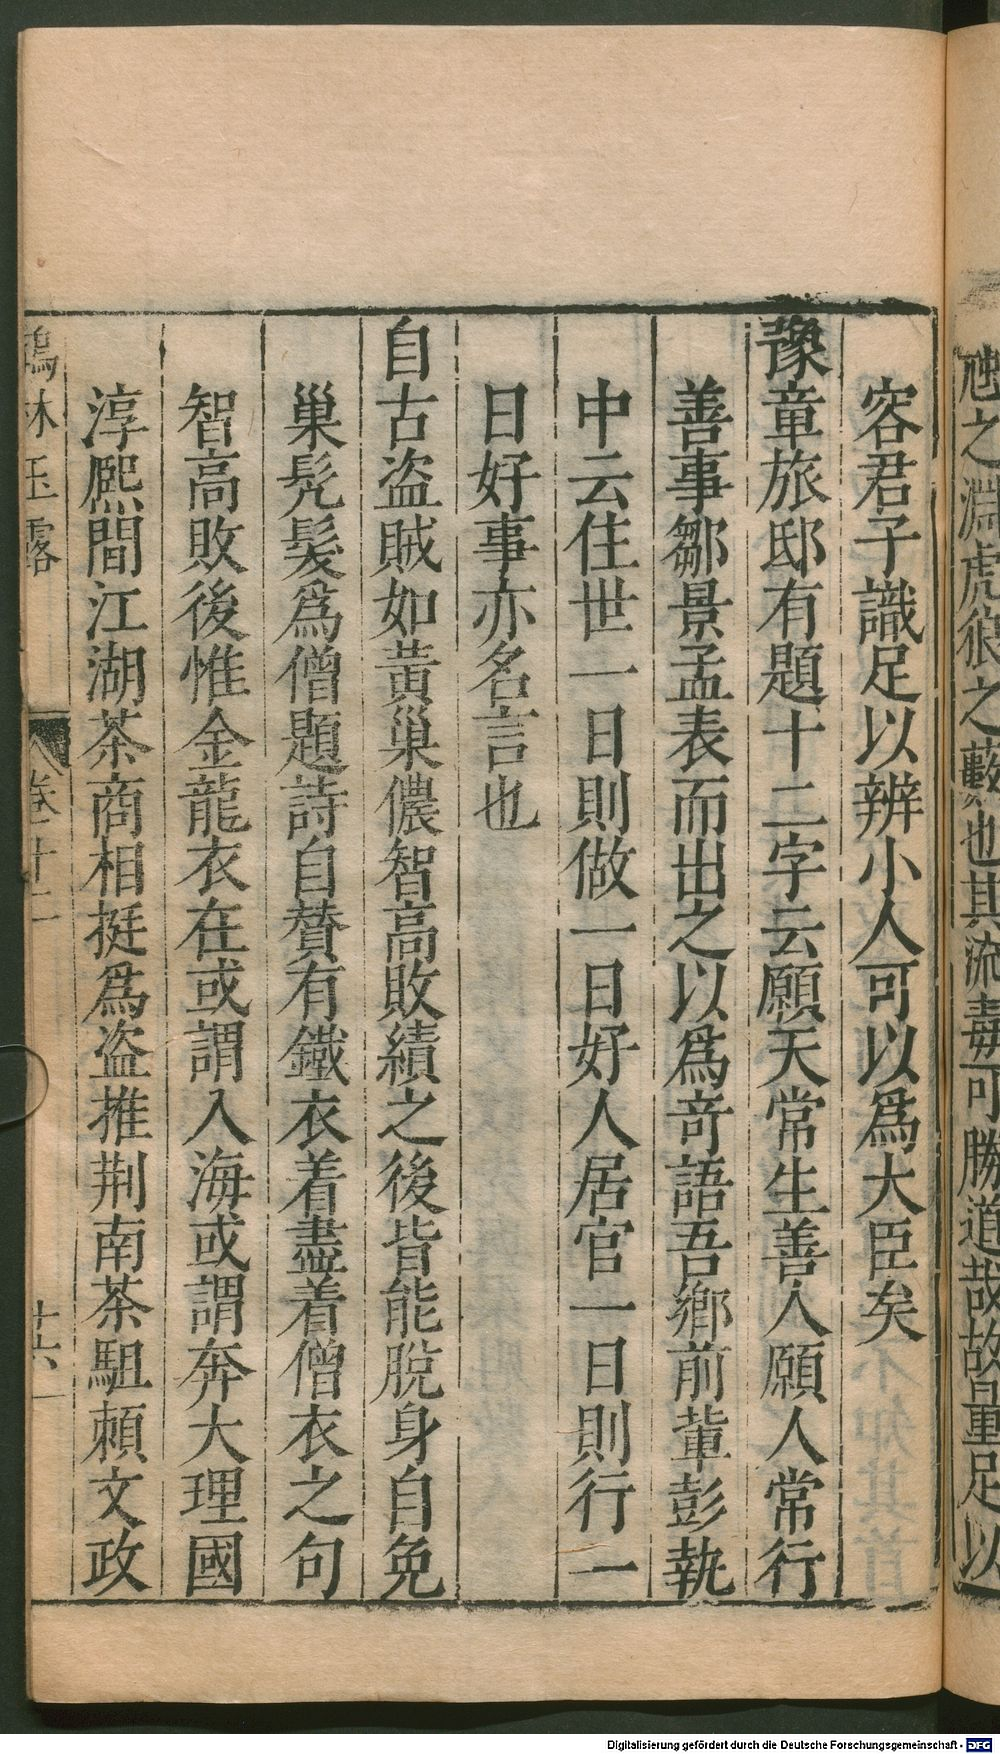 虺之淵虎狼之藪也其流毒可勝道哉故量足以
容君子識足以辨小人可以爲大臣矣
豫章旅邸有題十二字云願天常生善人願人常行
善事鄒景孟表而出之以爲奇語吾鄉前輩彭執
中云住世一日則做一日好人居官一日則行一
日好事亦名言也
自古盜賊如黃巢儂智高敗績之後皆能脫身自免
巢髠髮爲僧題詩自贊有鐵衣着盡着僧衣之句
智高敗後惟金龍衣在或謂入海或謂奔大理國
淳熈間江湖茶商相挺爲盜推荆南茶駔頼文政
鶴林玉露
卷十二
十六
Digitalisierung gefördert durch die Deutsche Forschungsgemeinschaft - DFG